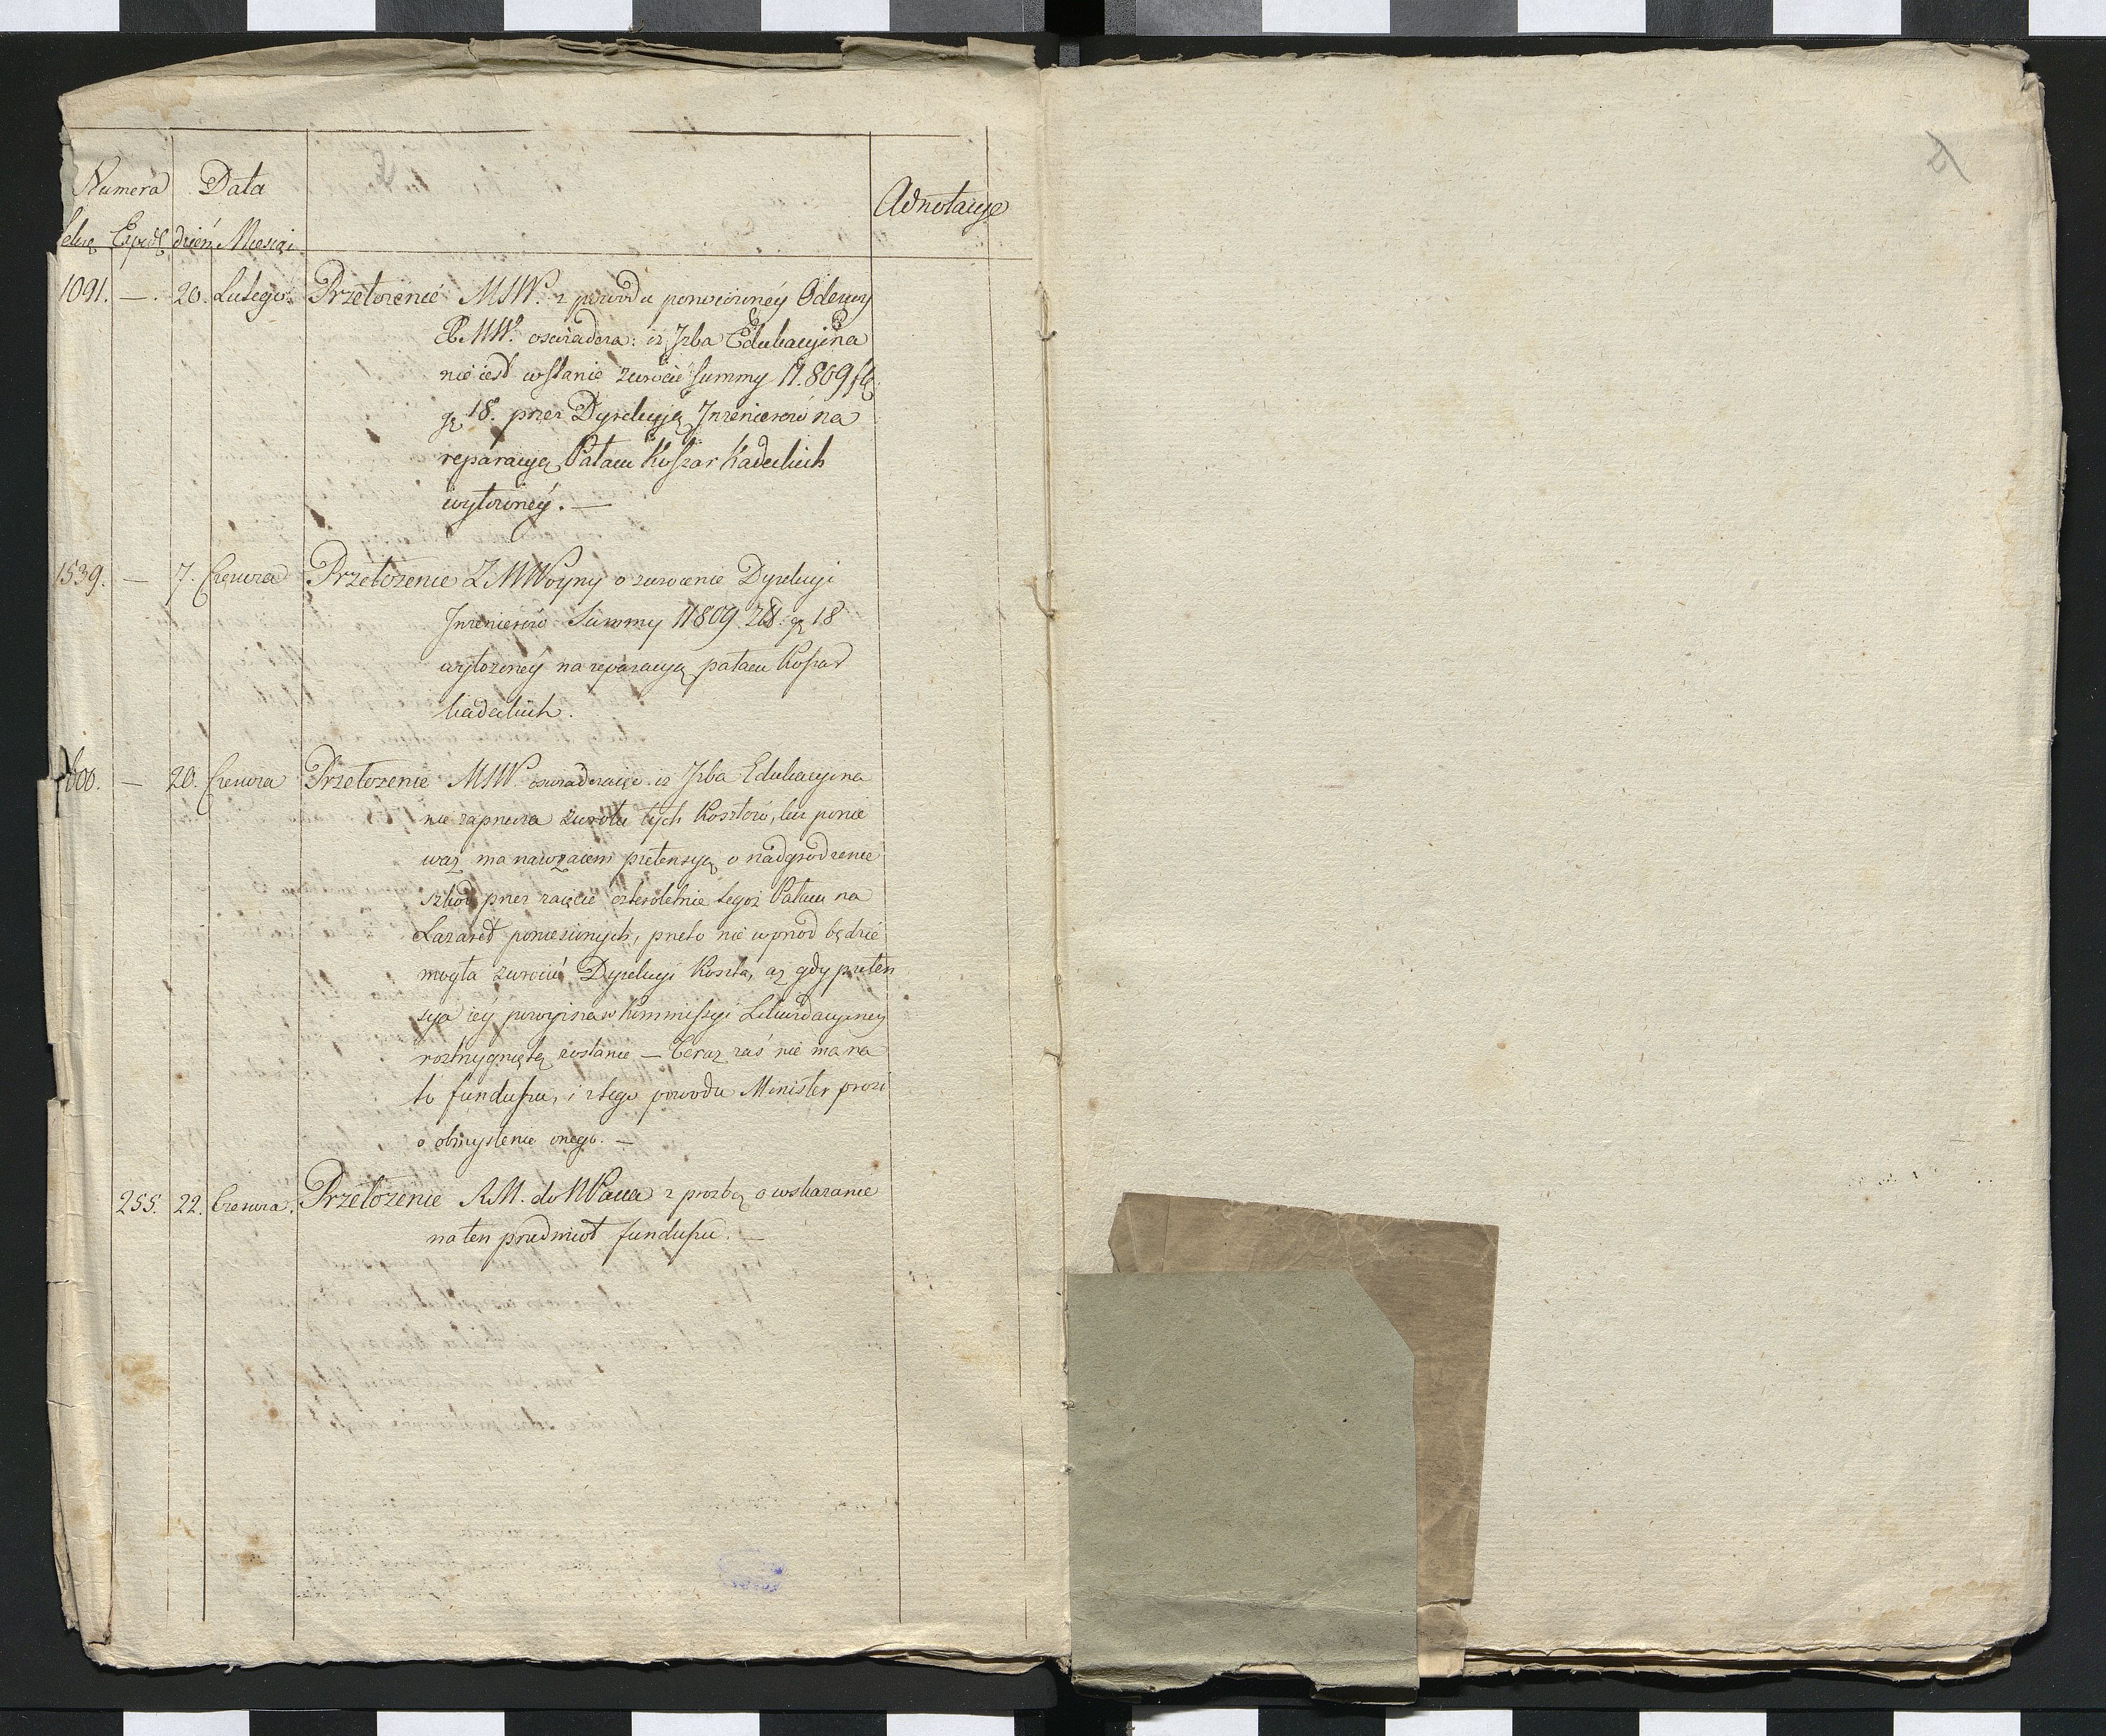 Numera Data
Exped dzień Miesiąc
Adnotacye
1091. —. 20. Lutego. Przełożenie MSW. z powodu ponowioney Odezwy
MW. oswiadcza: iż Jzba Edukacyina
nie iest wstanie zwrocić Summy 11.809 fl
gr 18. przez Dyrekcyą Jnzenierow na
reparacyą Pałacu Koszar Kadeckich
wyłożoney. —
1539. — 7. Czerwca Przełożenie MWoyny o zwrocenie Dyrekcyi
Jnzenierów Summy 11809 Zł: gr 18
wyłożoney na reparacyą pałacu Koszar
kadeckich.
600. — 20. Czerwca Przełożenie MSW. oswiadczaiąc iż Jzba Edukacyina
nie zaprzecza zwrotu tych Kosztow, lecz ponie
waż ma nawzaiem pretensyą o nadgrodzenie
szkod przez zaięcie czteroletnie tegoż Pałacu na
Lazaret poniesionych, przeto nie wprzod będzie
mogła zwrocić Dyrekcyi Koszta, aż gdy preten
sya iey powyisza w Kommissyi Likwidacyiney
roztrzygniętą zostanie — Teraz zaś nie ma na
to funduszu, i z tego powodu Minister prosi
o obmyslenie onego. —
255. 22. Czerwca. Przełożenie RM. do NPana z prozbą o wskazanie
na ten przedmiot funduszu. —